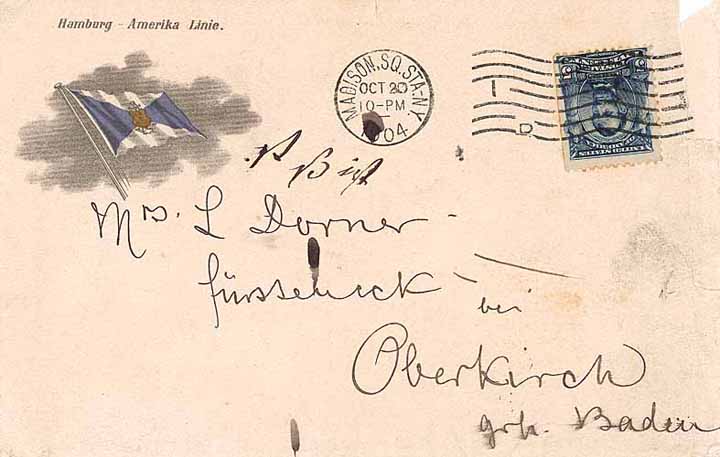 Hamburg - Amerika Linie.
MADISON.SQ.STA-N.Y.
OCT 20
10-PM
1904
Mrs. L Dorner -
bei
Oberkirch
grh. Baden